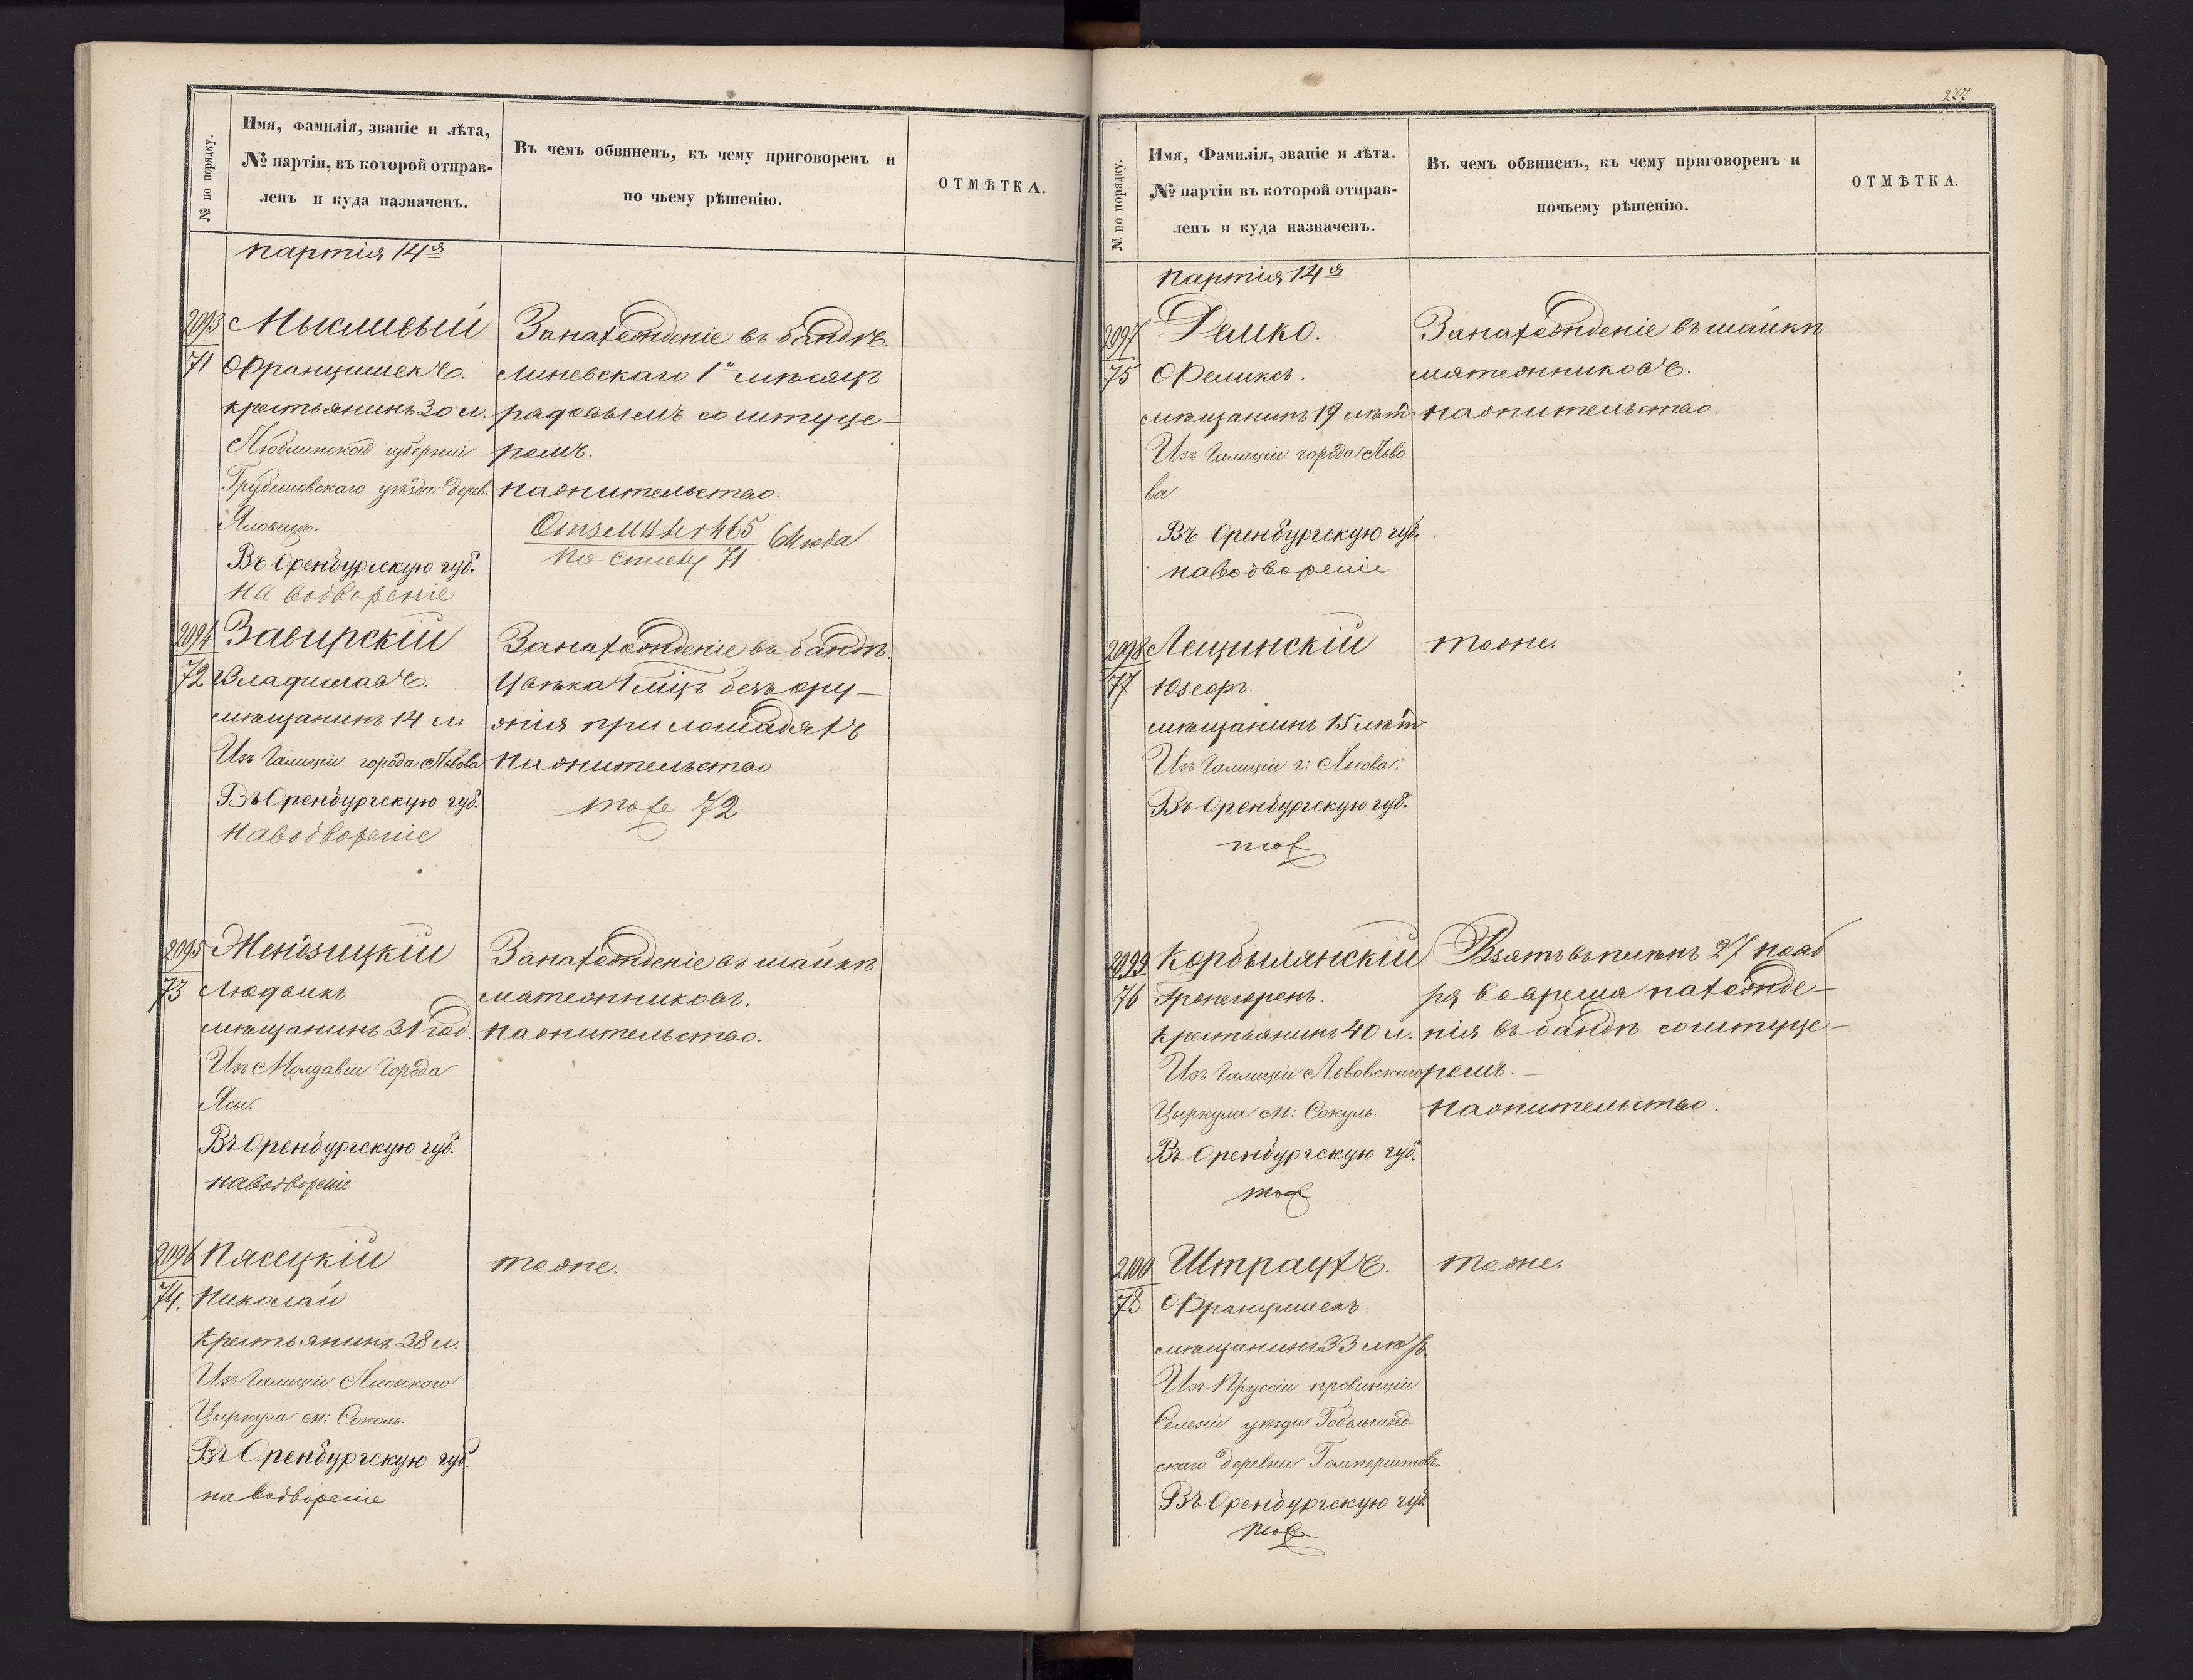 № по порядку.
Имя, фамилія, званіе и лѣта,
№ партіи, въ которой отправ-
ленъ и куда назначенъ.
Въ чемъ обвиненъ, къ чему приговоренъ и
по чьему рѣшенію.
ОТМѢТКА.
партія 14я
2093
71
Мысливый
Францишекъ.
крестьянинъ 30 л.
Люблинской губерніи
Грубешовскаго уѣзда дерев.
Въ Оренбургскую губ.
на водвореніе
За нахожденіе въ бандѣ
Линевскаго 1н мѣсяцъ
рядовымъ со штуце-
ромъ.
на жительство.
465
по списку 71
2094
72
Завирскій
Владиславъ.
мѣщанинъ 14 л.
Изъ Галиціи города Львова
Въ Оренбургскую губ.
на водвореніе
За нахожденіе въ бандѣ
Цвѣка 1 мѣцъ безъ ору-
жія при лошадяхъ
на жительство
тоже 72
2095
73
Жендзицкій
Людвикъ
мѣщанинъ 31 год.
Изъ Молдавіи города
Ясы.
Въ Оренбургскую губ.
на водвореніе
За нахожденіе въ шайкѣ
мятежниковъ.
на жительство.
2096
74.
Пясецкій
Николай
крестьянинъ 38 л.
Изъ Галиціи Львовскаго
Цыркула м: Соколь.
Въ Оренбургскую губ.
на водвореніе
тоже.
227
№ по порядку.
Имя, Фамилія, званіе и лѣта.
№ партіи въ которой отправ-
ленъ и куда назначенъ.
Въ чемъ обвиненъ, къ чему приговоренъ и
почьему рѣшенію.
ОТМѢТКА.
партія 14я
2097
75
Демко.
Феликсъ.
мѣщанинъ 19 лѣт
Изъ Галиціи города Льво
ва.
Въ Оренбургскую губ.
на водвореніе
За нахожденіе въ шайкѣ
мятежниковъ.
на жительство.
2098
77
Лещинскій
Юзефъ.
мѣщанинъ 15 лѣт
Изъ Галиціи г: Львова.
Въ Оренбургскую губ.
тож
тоже.
2099
76
Корбылянскій
крестьянинъ 40 л.
Изъ Галиціи Львовскаго
Цыркула м: Сокуль.
Въ Оренбургскую губ.
тож
Взятъ въ плѣнъ 27 нояб
ря во время нахожде-
нія въ бандѣ со штуце-
ромъ.
на жительство.
2100
78
Штраухъ.
Францишекъ.
мѣщанинъ 33 лѣтъ
Изъ Пруссіи провинціи
Селезіи уѣзда
скаго деревни
Въ Оренбургскую губ.
тож
тоже.